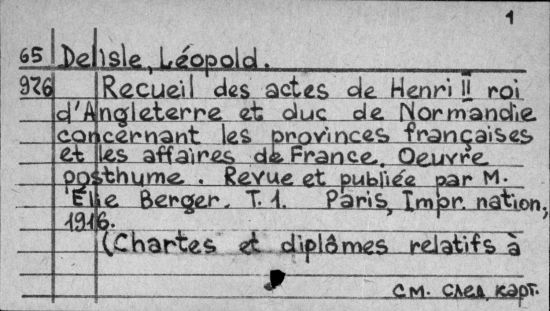 1
65 Delisle, Léopold.
926 Recueil des actes de Henri II roi
d'Angleterre et duc de Normandie
concernant les provinces françaises
et les affaires de France. Oeuvre
posthume. Revue et publiée par M.
Élie Berger. T. 1. Paris, Impr. nation,
1916.
(Chartes et diplômes relatifs à
см. след. карт.